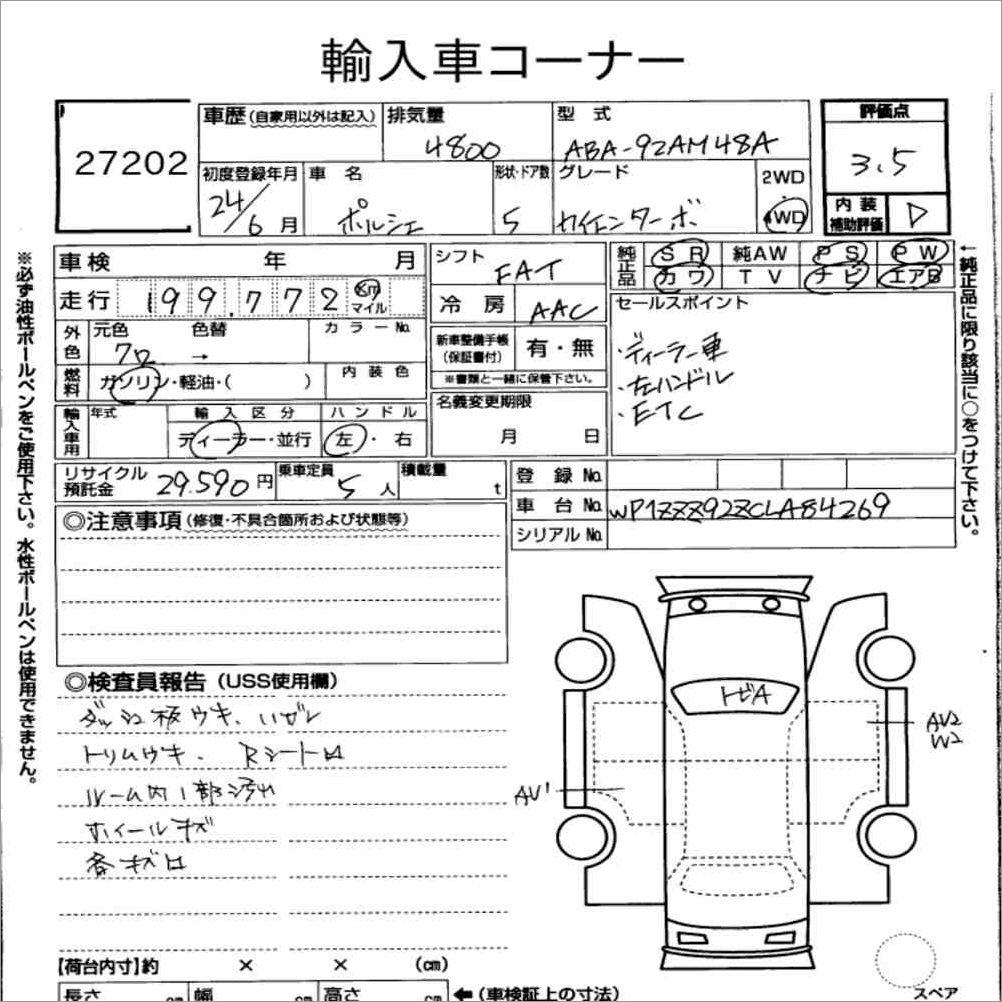 輸入車コーナー
27202
車歴(自家用以外は記入)
排気量
4800
型式
ABA-92AM48A
評価点
3.5
初度登録年月
24/6月
車名
ポルシェ
形状・ドア数
5
グレード
カイエンターボ
2WD
4WD
内装補助評価
D
車検 年 月
走行 199,772 Km マイル
シフト
FAT
冷房
AAC
純正品
SR 純AW PS PW
カワ TV ナビ エアB
セールスポイント
・ディーラー車
・左ハンドル
・ETC
外色
元色 色替 カラーNo.
クロ →
燃料
ガソリン・軽油・( )
内装色
新車整備手帳(保証書付)
有・無
※書類と一緒に保管下さい。
名義変更期限
月 日
輸入車用
年式
輸入区分
ディーラー・並行
ハンドル
左・右
リサイクル預託金
29,590円
乗車定員
5人
積載量
t
登録No.
車台No. WP1ZZZ92ZCLA84269
シリアルNo.
◎注意事項(修復・不具合箇所および状態等)
◎検査員報告(USS使用欄)
ダッシュ板ウキ、ハガレ
トリムウキ、Rシート
ルーム内1部汚れ
ホイールキズ
各キズ
トビA
AV2
W2
AV1
【荷台内寸】約 × × (cm)
長さ cm 幅 cm 高さ cm
←(車検証上の寸法)
スペア
※必ず油性ボールペンをご使用下さい。水性ボールペンは使用できません。
←純正品に限り該当に○をつけて下さい。